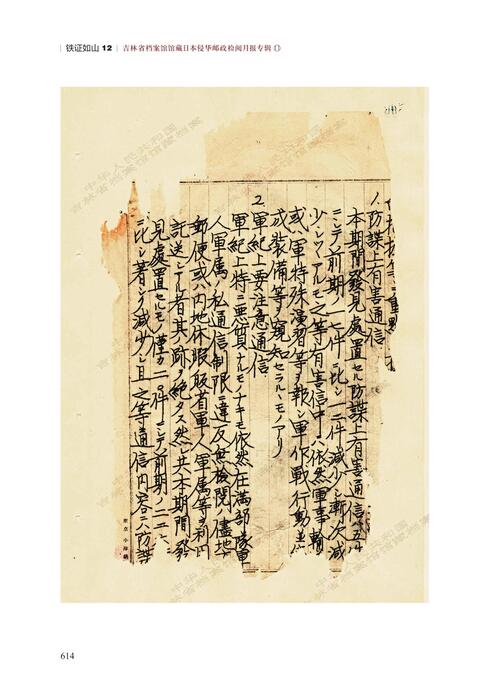 铁证如山 12 | 吉林省档案馆馆藏日本侵华邮政检阅月报专辑 ①
1.防諜上有害通信
本期間發見處置セル防諜上有害通信ハ五
ニシテ前期ノ一七件ニ比シ一二件減少シ漸次減
少シツツアルモ之等有害信中ニハ依然軍事輸
或ハ軍特殊演習等ヲ報シ軍作戰行動並
成裝備等ヲ窺知セラルルモノアリ
2.軍紀上要注意通信
軍紀上特ニ惡質ナルモノナキモ依然在滿部隊軍
人軍屬ノ私通信制限ニ違反無檢閱ノ儘地
郵便或ハ內地休暇歸省軍人軍屬等ヲ利
託送シアル者其ノ跡ヲ絕タス然共本期間發
見處置セルモノ僅カニ二〇件ニシテ前期ノ二二
ニ比シ著シク減少シ且之等通信內容ニハ防諜
中华人民共和国
吉林省档案馆馆藏档案
614